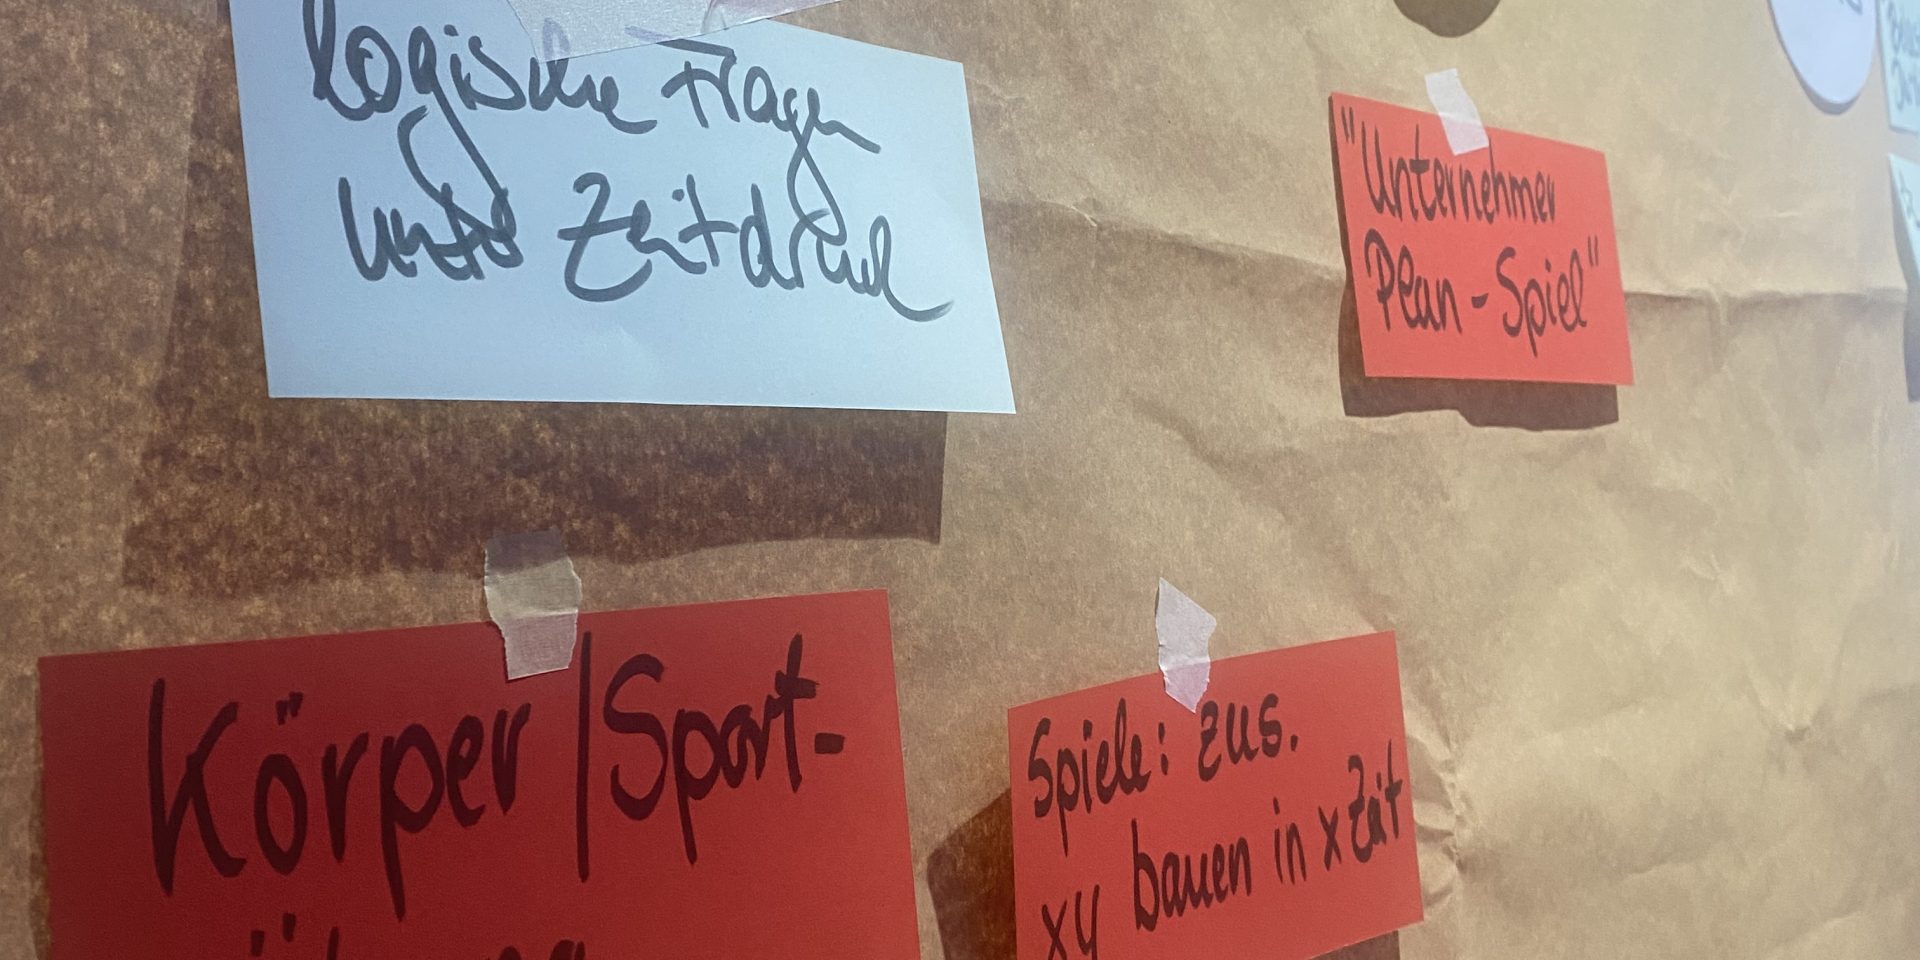 logische Fragen
unter Zeitdruck
"Unternehmer
Plan-Spiel"
Körper/Sport-
Spiele: zus.
xy bauen in x Zeit